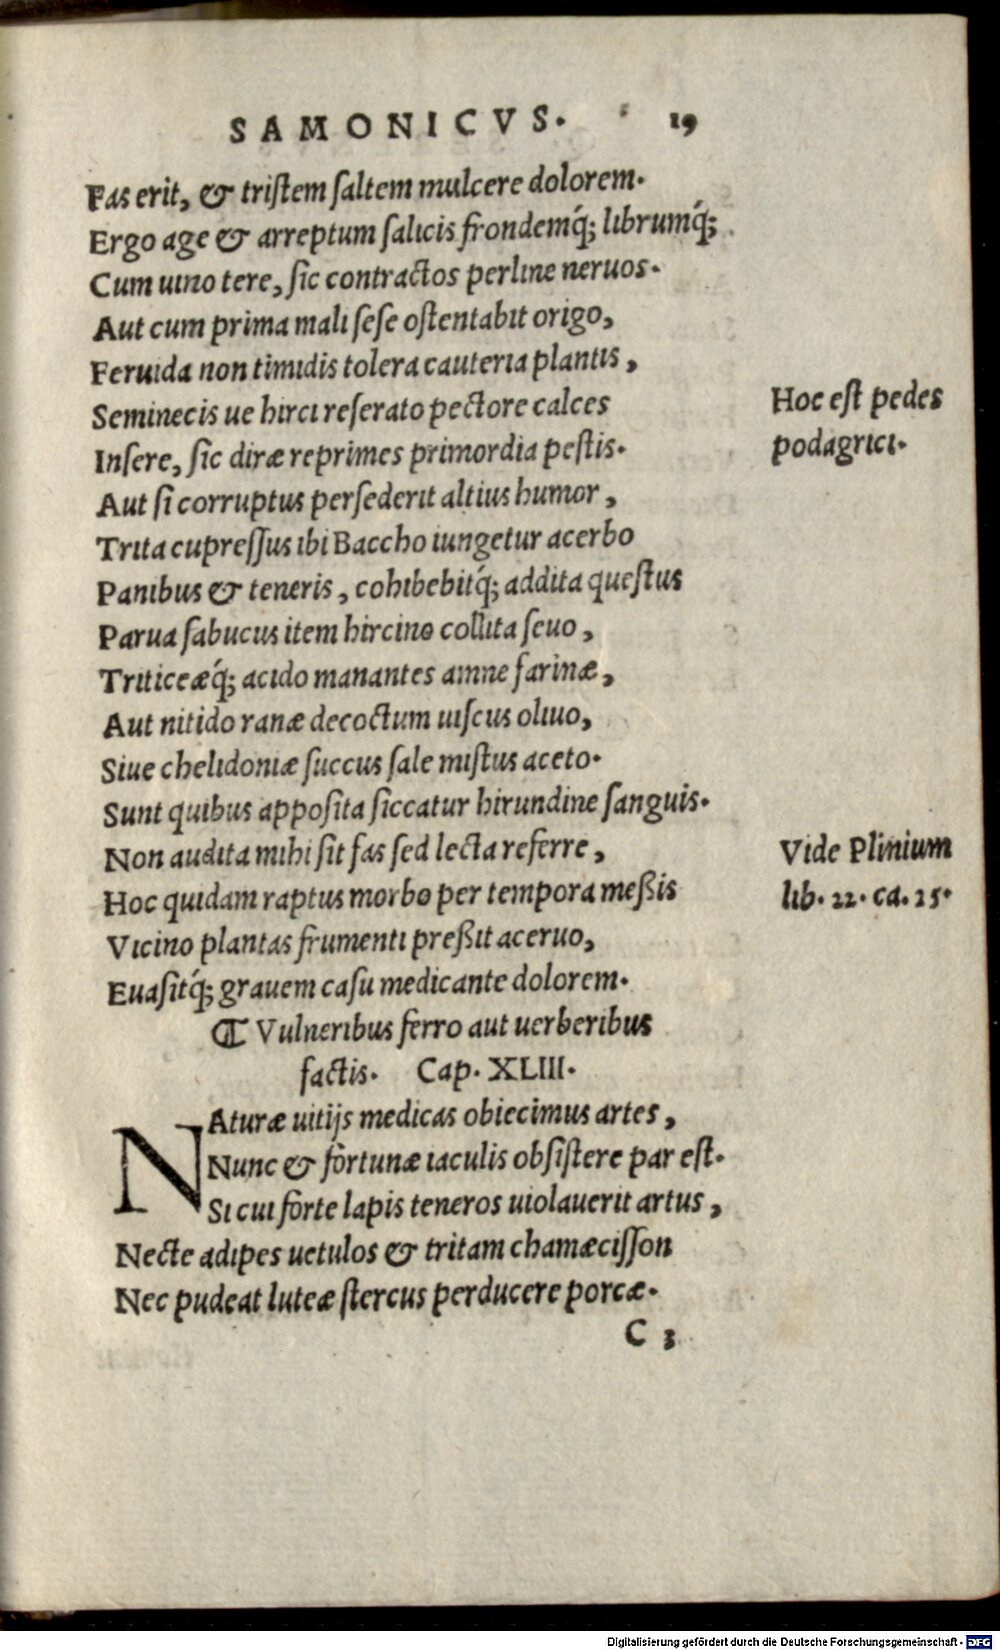 SAMONICVS. 19
Fas erit, & tristem saltem mulcere dolorem.
Ergo age & arreptum salicis frondemq́; librumq́;
Cum uino tere, sic contractos perline neruos.
Aut cum prima mali sese ostentabit origo,
Feruida non timidis tolera cauteria plantis,
Seminecis ue hirci reserato pectore calces
Hoc est pedes
Insere, sic diræ reprimes primordia pestis.
podagrici.
Aut si corruptus persederit altius humor,
Trita cupressus ibi Baccho iungetur acerbo
Panibus & teneris, cohibebitq́; addita questus
Parua sabucus item hircino collita seuo,
Triticeæq́; acido manantes amne farinæ,
Aut nitido ranæ decoctum uiscus oliuo,
Siue chelidoniæ succus sale mistus aceto.
Sunt quibus apposita siccatur hirundine sanguis.
Non audita mihi sit fas sed lecta referre,
Vide Plinium
Hoc quidam raptus morbo per tempora meßis
lib. 22. ca. 25.
Vicino plantas frumenti preßit aceruo,
Euasitq́; grauem casu medicante dolorem.
¶ Vulneribus ferro aut uerberibus
factis. Cap. XLIII.
NAturæ uitijs medicas obiecimus artes,
Nunc & fortunæ iaculis obsistere par est.
Si cui forte lapis teneros uiolauerit artus,
Necte adipes uetulos & tritam chamæcisson
Nec pudeat luteæ stercus perducere porcæ.
C 3
Digitalisierung gefördert durch die Deutsche Forschungsgemeinschaft - DFG